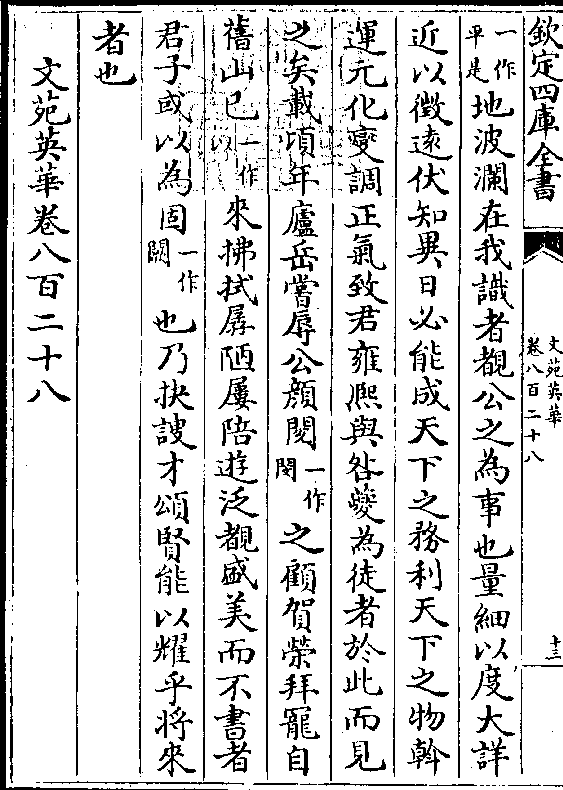 欽定四庫全書
文苑英華
卷八百二十八
十三
一作平是地波瀾在我識者覩公之為事也量細以度大詳
近以徵遠伏知異日必能成天下之務利天下之物斡
運元化變調正氣致君雍熈與咎夔為徒者於此而見
之矣載頃年廬岳嘗辱公顔閔一作閔之顧賀榮拜寵自
舊山已一作以來拂拭孱陋屢陪遊泛覩盛美而不書者
君子或以為固一作闕也乃抉謏才頌賢能以耀乎將來
者也
文苑英華卷八百二十八